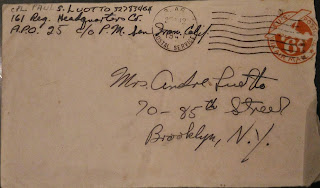 CPL PAUL S. LUOTTO 32251404
161 Reg. Headquarters Co.
A.P.O. 25 c/o P.M. San Fran. Calif
POSTAL SERVICE
Mrs. Andre Luotto
70-85th Street
Brooklyn, N.Y.